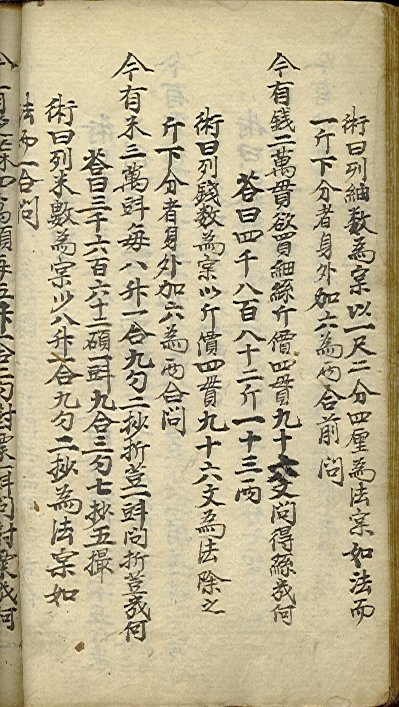 術曰列紬數為宲以一尺二分四厘為法宲如法而
一斤下分者身外加六為兩合前問
今有錢二萬貫欲買細絲斤價四貫九十六文問得絲幾何
答曰四千八百八十二斤一十三兩
術曰列錢數為宲以斤價四貫九十六文為法除之
斤下分者身外加六為兩合問
今有米三萬斗每八升一合九勺二抄折荳一斗問折荳幾何
答曰三千六百六十二碩一斗九合三勺七抄五撮
術曰列米數為宲以八升一合九勺二抄為法宲如
法而一合問